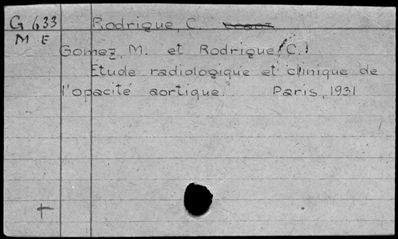 G 633 Rodrigue, C.
M E
Gomez, M. et Rodrigue, C.
Etude radiologique et clinique de
l'opacité aortique. Paris, 1931